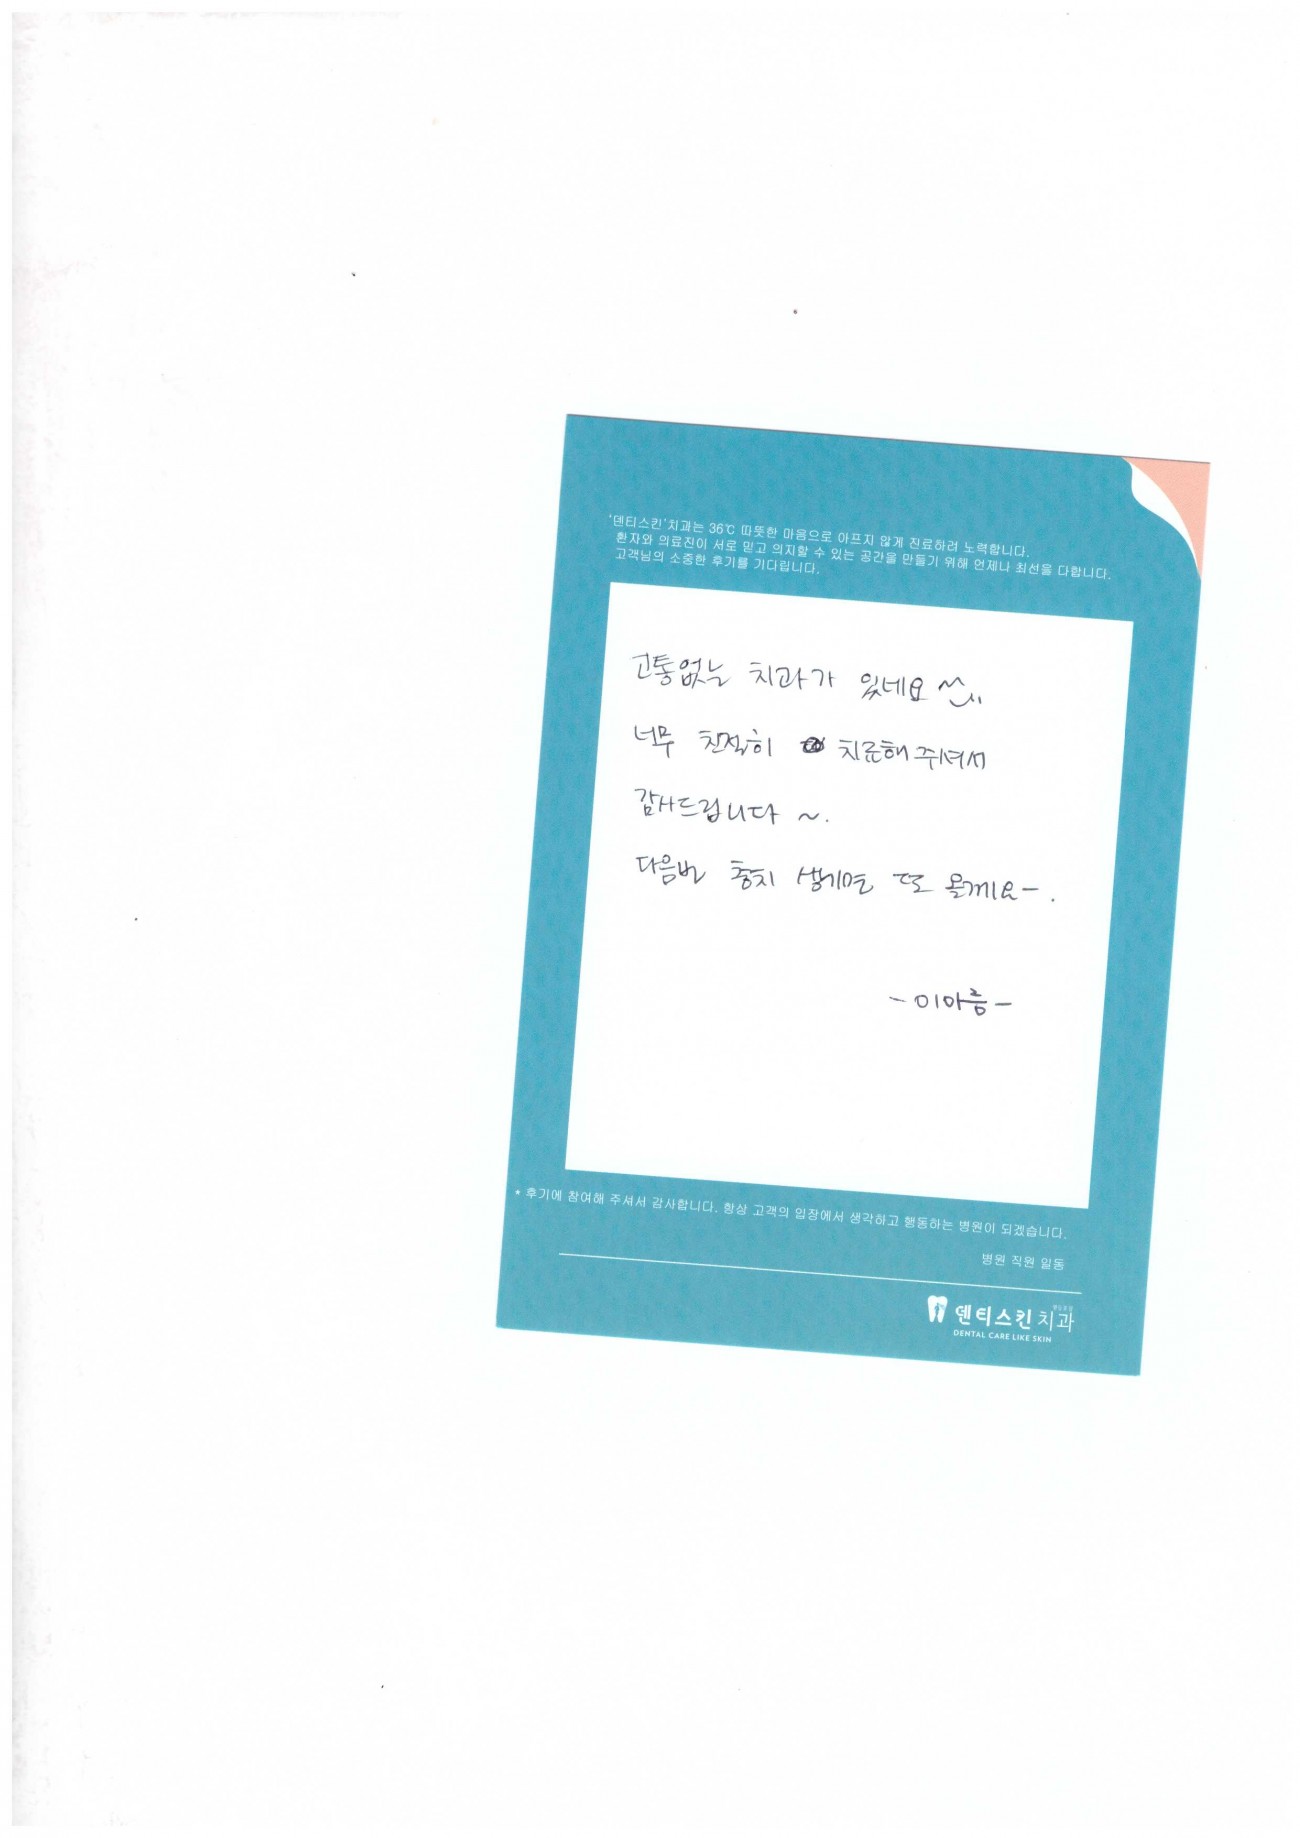 '덴티스킨'치과는 36℃ 따뜻한 마음으로 아프지 않게 진료하려 노력합니다.
환자와 의료진이 서로 믿고 의지할 수 있는 공간을 만들기 위해 언제나 최선을 다합니다.
고객님의 소중한 후기를 기다립니다.
고통없는 치과가 있네요 ^^
너무 친절히 치료해주셔서
감사드립니다 ~.
다음번 충치 생기면 또 올게요-.
-이아름-
* 후기에 참여해 주셔서 감사합니다. 항상 고객의 입장에서 생각하고 행동하는 병원이 되겠습니다.
병원 직원 일동
덴티스킨치과
DENTAL CARE LIKE SKIN